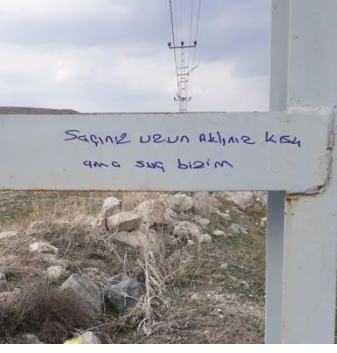 Saçınız uzun Aklınız kısa
ama suç bizim